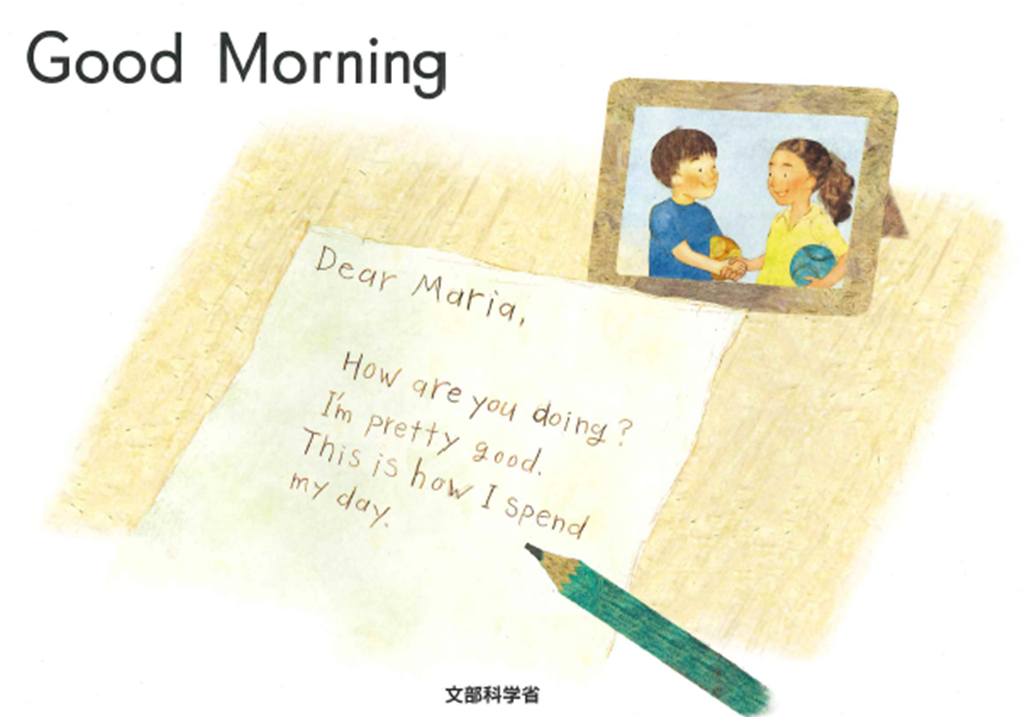 Good Morning
Dear Maria,
How are you doing?
I'm pretty good.
This is how I spend
my day.
文部科学省